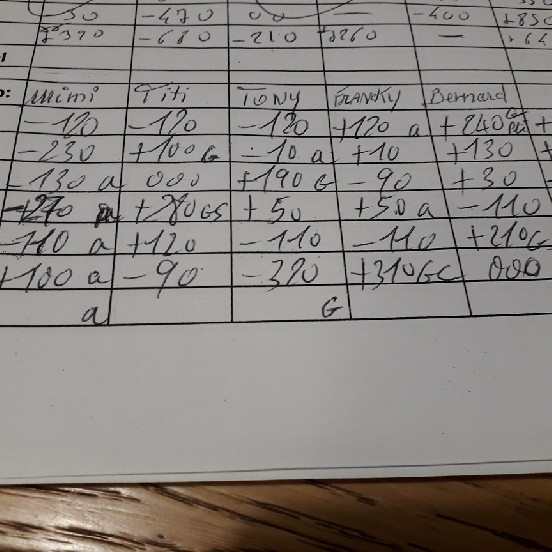 -50 -470 00 — -400 +850
+320 -680 -210 +260 — +64
Mimi Titi TONY FRANCKY Bernard
-120 -120 -120 +120 a +240 +
-230 +100G -10 a +10 +130 +
-130 a 000 +190 G -90 +30 -
-270 +280GS +50 +50 a -110
-110 a +120 -110 -110 +210G
+100 a -90 -320 +310GC 000
a G